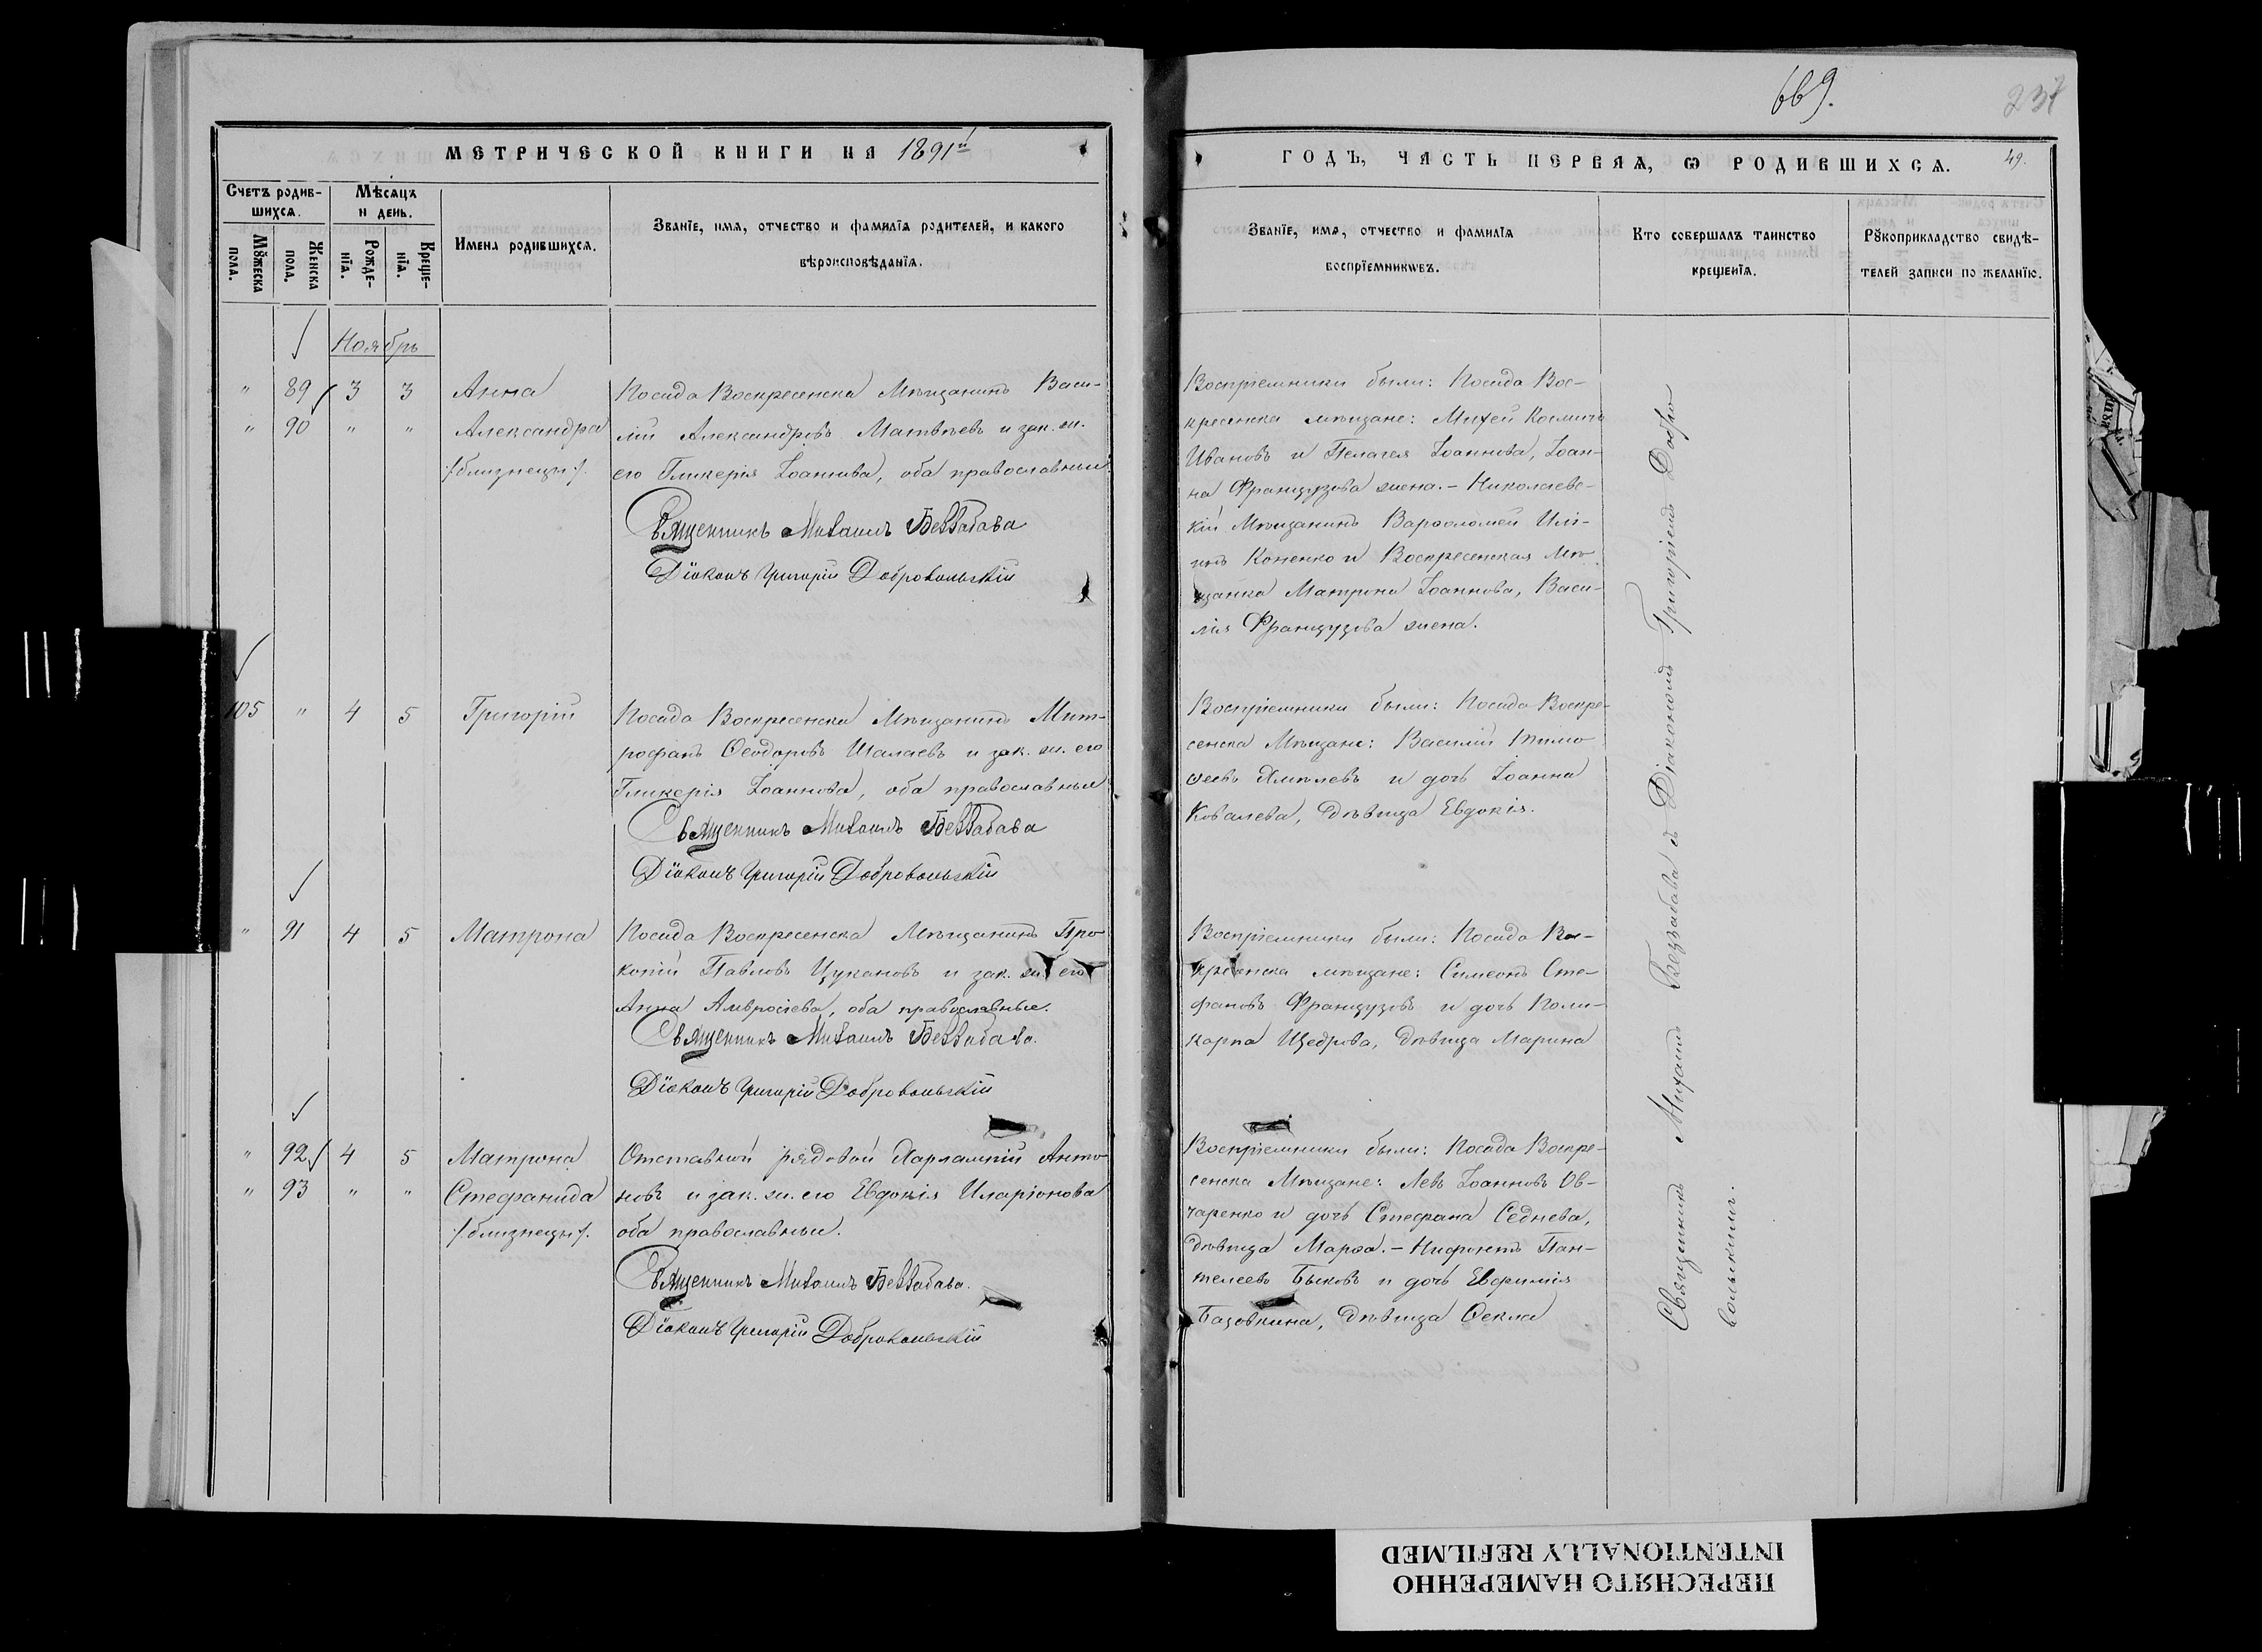 669.
237
МЕТРИЧЕСКОЙ КНИГИ НА 1891й
ГОДЪ, ЧАСТЬ ПЕРВАЯ, Ѡ РОДИВШИХСѦ.
49.
Счетъ родив-
шихсѧ.
Мѣсяцъ
и день.
Мꙋжеска
пола.
Женска
пола.
Рожде-
нїѧ.
Креще-
нїѧ.
Имена родившихсѧ.
Званїе, имѧ, отчество и фамилїѧ родителей, и какого
вѣроисповѣданїѧ.
Званїе, имѧ, отчество и фамилїѧ
воспрїемникѡвъ.
Кто совершалъ таинство
крещенїѧ.
Рꙋкоприкладство свидѣ-
телей записи по желанїю.
Ноябрь
" 89 3 3 Анна
" 90 " " Александра
/близнецы/.
Посада Воскресенска Мѣщанинъ Васи-
лій Александровъ Матвѣевъ и зак. ж.
его Гликерія Іоаннова, оба православные
Священникъ Михаилъ Беззабава
Діаконъ Григорій Добровольскій
Воспріемники были: Посада Вос-
кресенска мѣщане: Михей Космичъ
Ивановъ и Пелагея Іоаннова, Іоан-
на Французова жена. – Николаевс-
кій Мѣщанинъ Варѳоломей Илі-
инъ Коненко и Воскресенская Мѣ-
щанка Матрона Іоаннова, Васи-
лія Французова жена.
105 " 4 5 Григорій
Посада Воскресенска Мѣщанинъ Мит-
рофанъ Ѳеодоровъ Шалаевъ и зак. ж. его
Гликерія Іоаннова, оба православные
Священникъ Михаилъ Беззабава
Діаконъ Григорій Добровольскій
Воспріемники были: Посада Воскре-
сенска Мѣщане: Василій Тимо-
ѳеевъ и дочь Іоанна
Ковалева, дѣвица Евдокія.
" 91 4 5 Матрона
Посада Воскресенска Мѣщанинъ Про-
копій Павловъ Цукановъ и зак. ж. его
Анна Амвросіева, оба православные.
Священникъ Михаилъ Беззабава.
Діаконъ Григорій Добровольскій
Воспріемники были: Посада Вос-
кресенска мѣщане: Симеонъ Сте-
фановъ Французовъ и дочь Поли-
карпа Щедрова, дѣвица Марина
" 92 4 5 Матрона
" 93 " " Стефанида
/близнецы/.
Отставной рядовой Харлампій Анто-
новъ и зак. ж. его Евдокія Иларіонова
оба православные.
Священникъ Михаилъ Беззабава.
Діаконъ Григорій Добровольскій
Воспріемники были: Посада Воскре-
сенска Мѣщане: Левъ Іоанновъ Ов-
чаренко и дочь Стефана Седнева,
дѣвица Марѳа. – Нифонтъ Пан-
телеевъ Быковъ и дочь Евфимія
Базовкина, дѣвица Ѳекла
Священникъ Михаилъ Беззабава съ Діакономъ Григоріемъ Добро-
вольскимъ.
ПЕРЕСНЯТО НАМЕРЕННО
INTENTIONALLY REFILMED